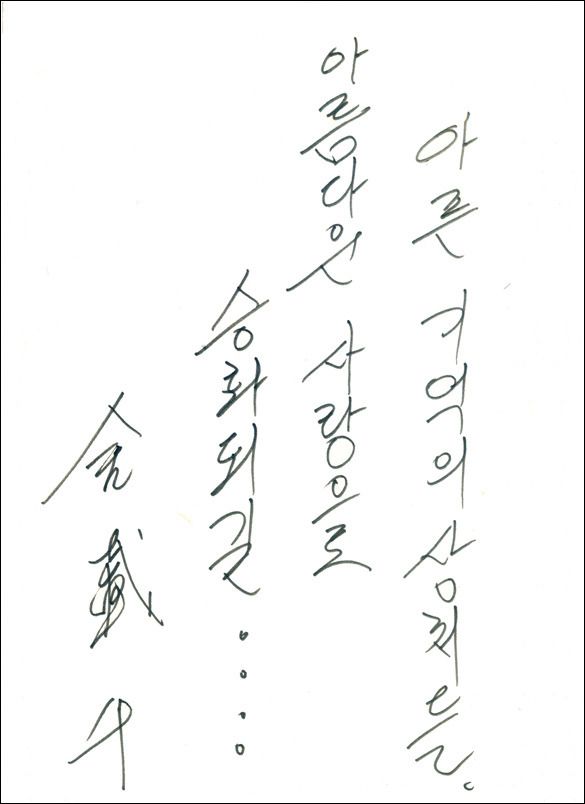 아픈 기억의 상처들.
아름다운 사랑으로
승화되길....
金載